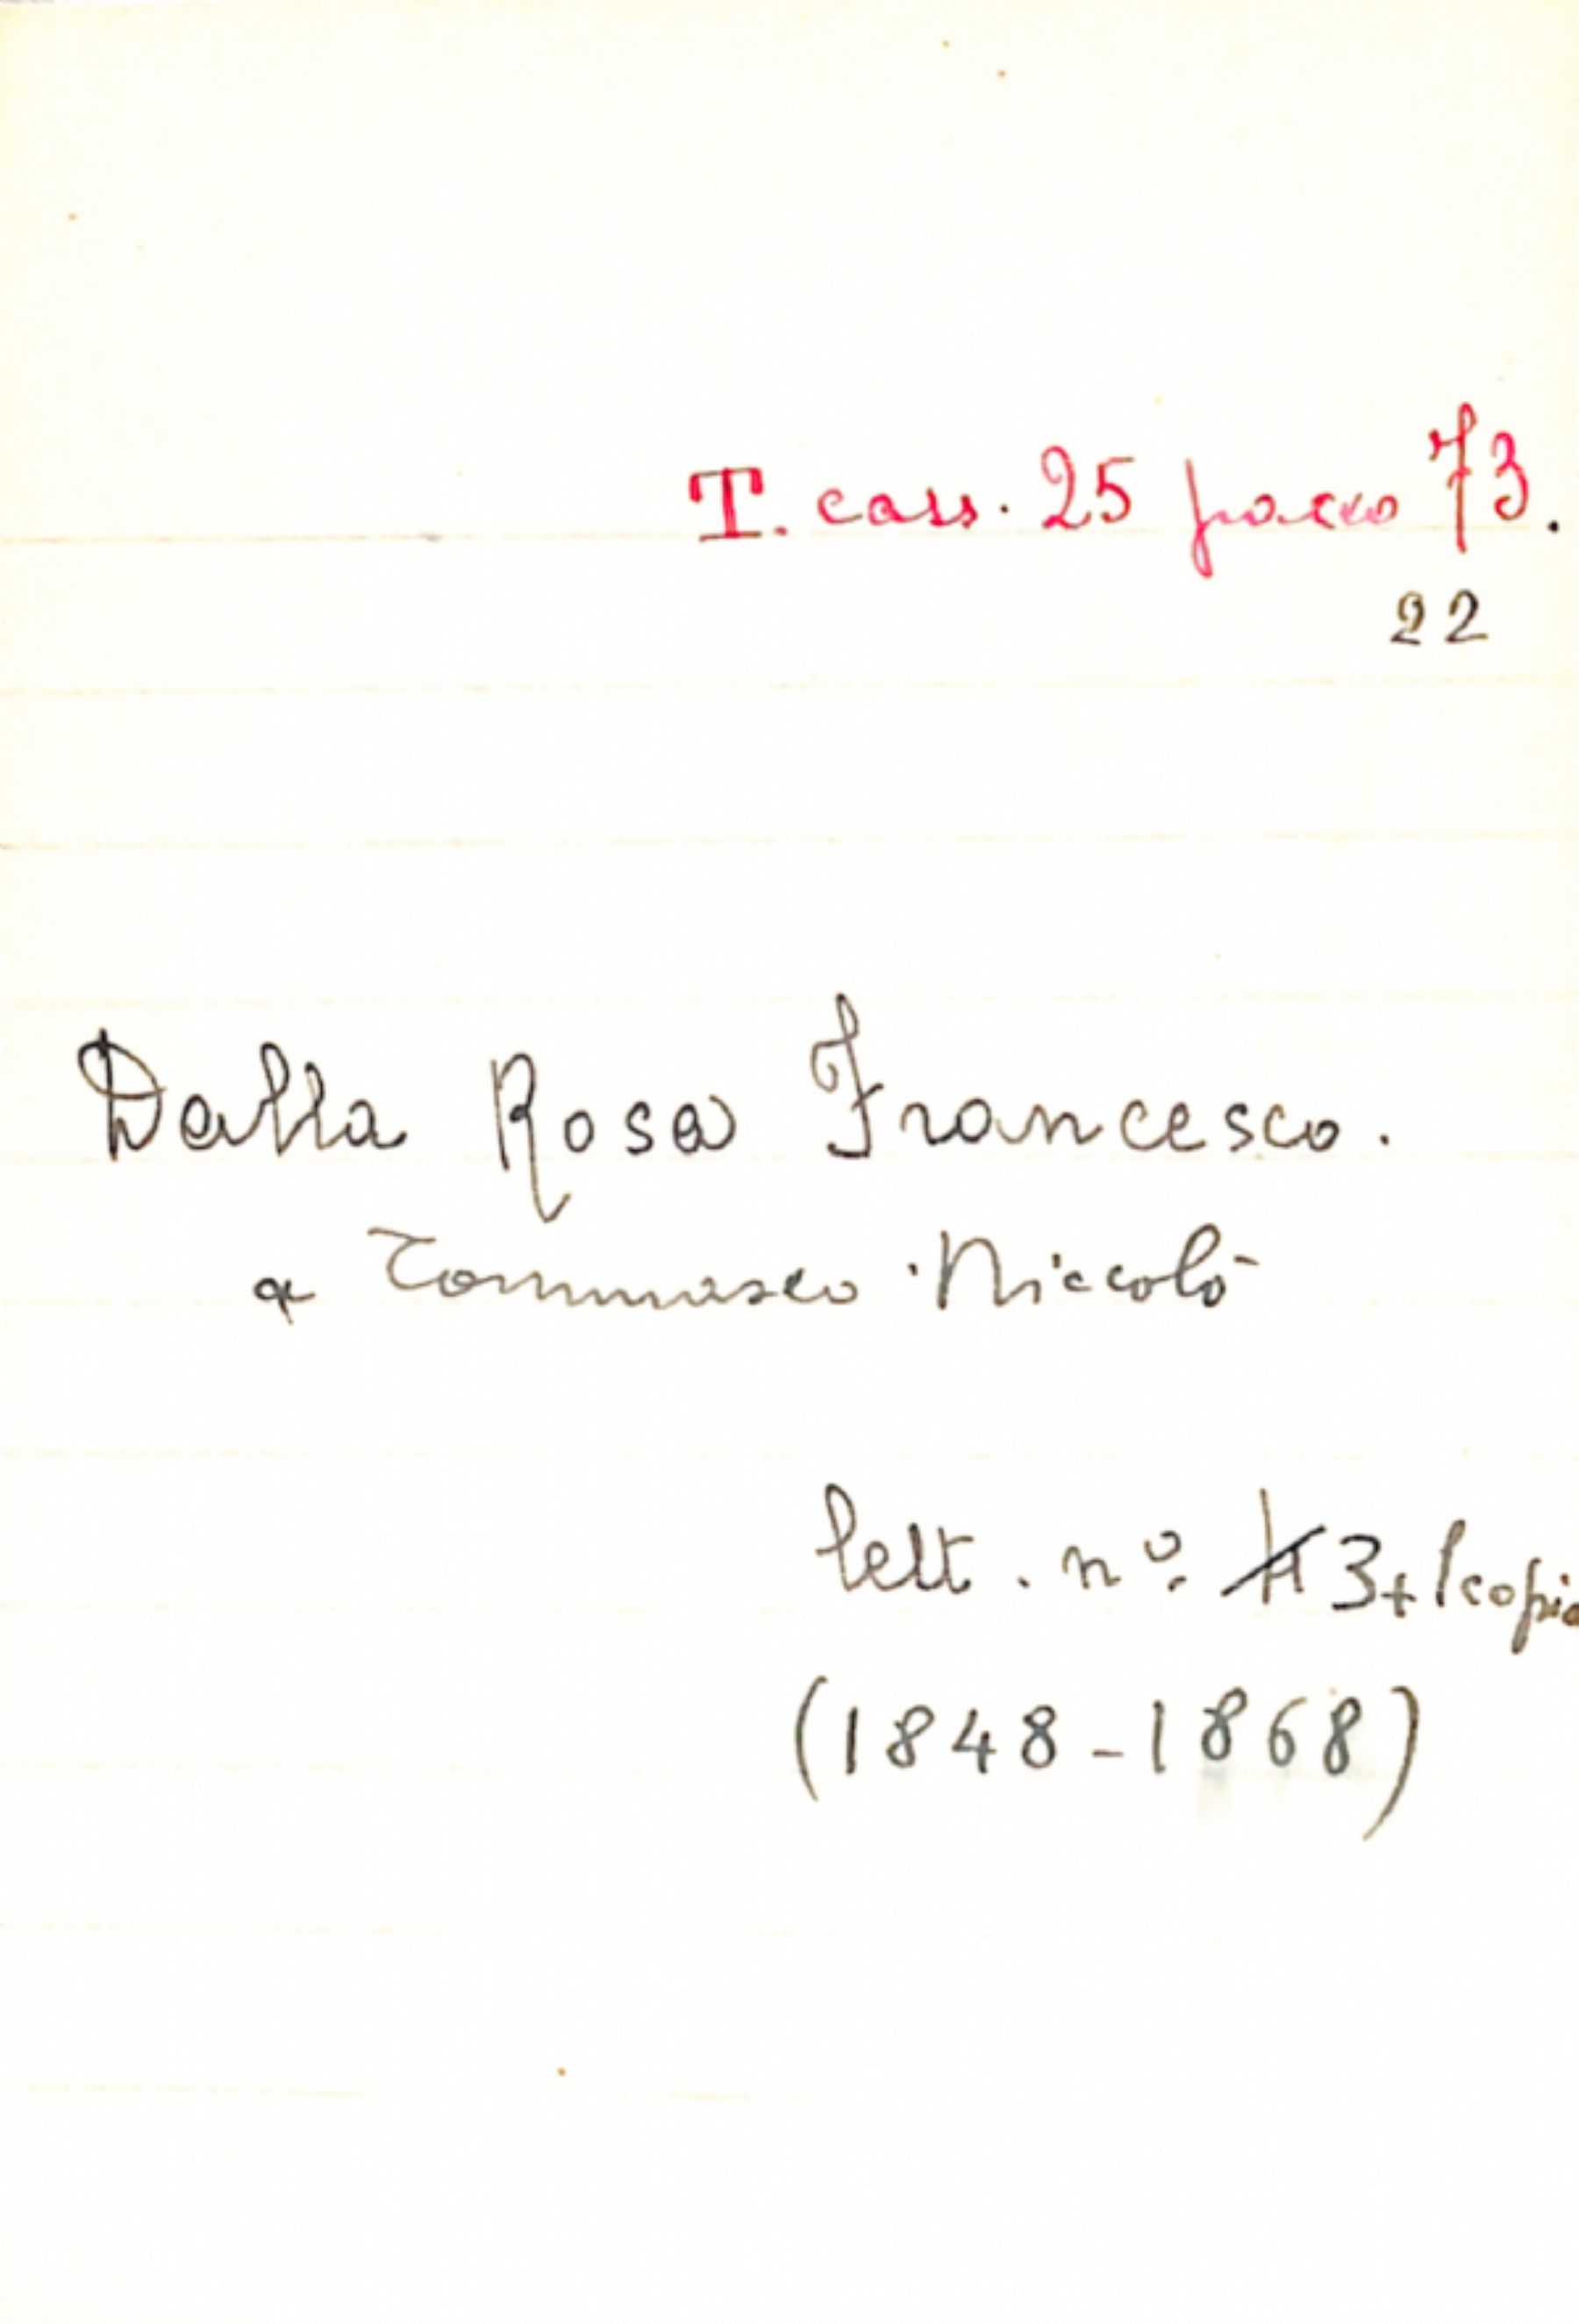 T. cass. 25 pacco 73.
22
Dalla Rosa Francesco.
a Tommaseo Niccolò
lett. n.º 4 3+1 copia
(1848-1868)